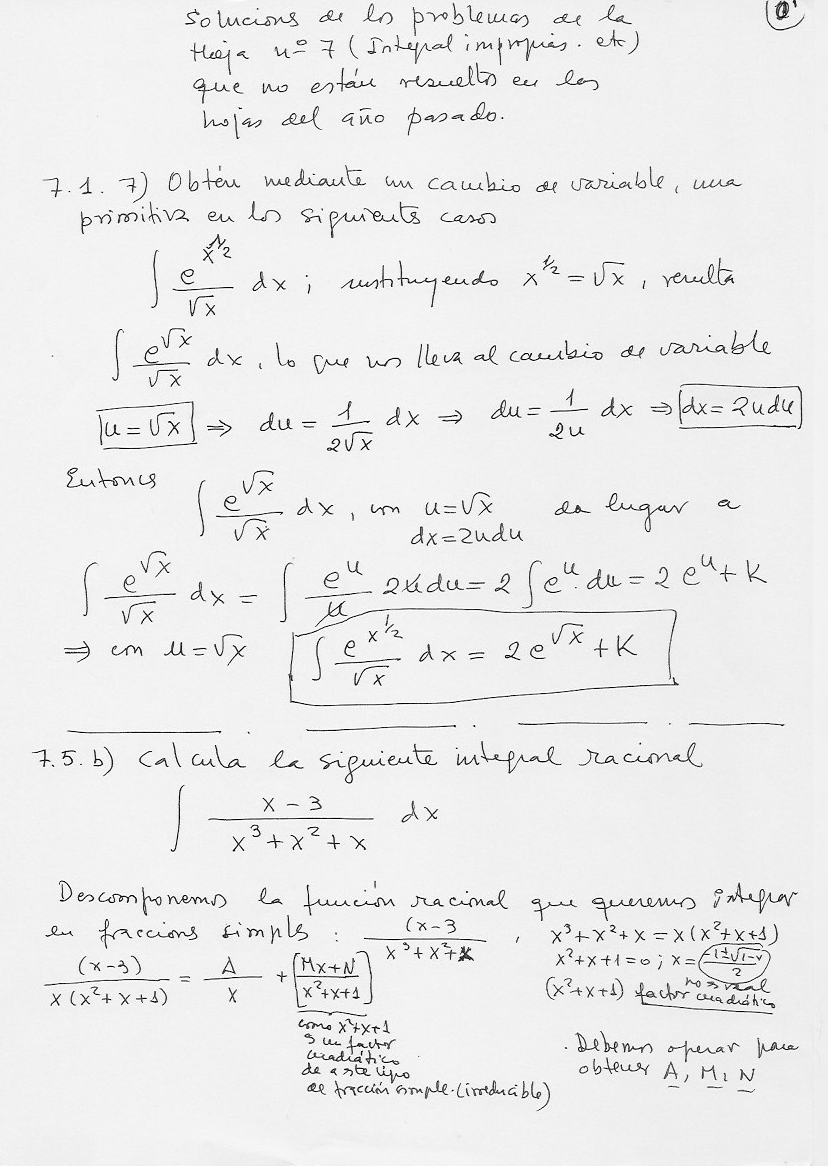 0'
Solucions de los problemas de la
Hoja nº 7 (Integral impropias. etc)
que no están resueltos en las
hojas del año pasado.
7.1. 7) Obtén mediante un cambio de variable, una
primitiva en los siguients casos
∫ e^{x^{1/2}}/√x dx ; sustituyendo x^{1/2} = √x , resulta
∫ e^{√x}/√x dx , lo que nos lleva al cambio de variable
u = √x ⇒ du = 1/(2√x) dx ⇒ du = 1/(2u) dx ⇒ dx = 2udu
Entoncs ∫ e^{√x}/√x dx , con u = √x da lugar a
dx = 2udu
∫ e^{√x}/√x dx = ∫ e^u/u 2udu = 2 ∫ e^u · du = 2 e^u + K
⇒ con u = √x ∫ e^{x^{1/2}}/√x dx = 2 e^{√x} + K
7.5. b) Calcula la siguiente integral racional
∫ (x - 3)/(x³ + x² + x) dx
Descomponemos la función racional que queremos integrar
en fraccions simpls : (x-3/(x³ + x² + x) , x³ + x² + x = x(x² + x + 1)
x² + x + 1 = 0 ; x = (-1 ± √1-4)/2
no s real
(x² + x + 1) factor cuadrático
(x-3)/(x(x² + x + 1)) = A/x + [(Mx + N)/(x² + x + 1)]
como x² + x + 1
s un factor
cuadrático
da a ste tipo
de fracción simple. (irreducible)
. Debemos operar para
obtener A, M, N